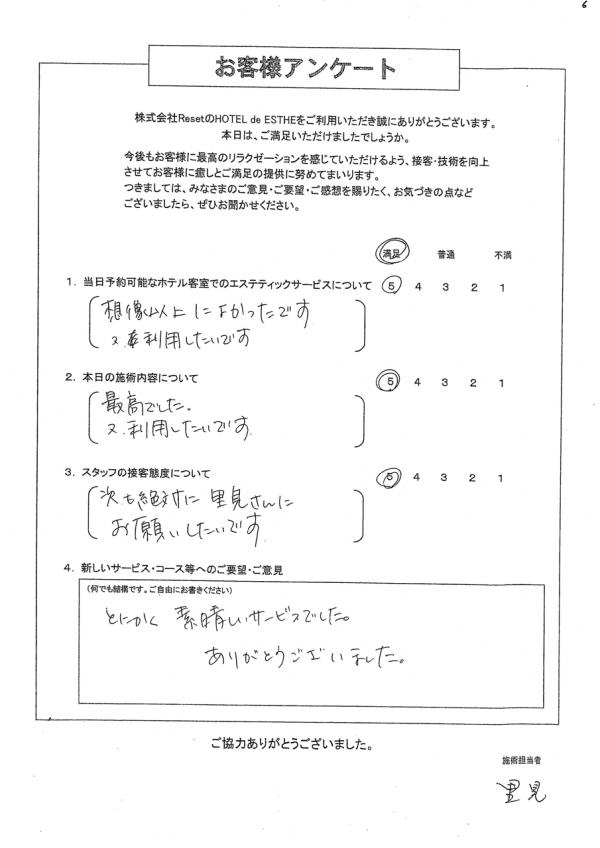 6
お客様アンケート
株式会社ResetのHOTEL de ESTHEをご利用いただき誠にありがとうございます。
本日は、ご満足いただけましたでしょうか。
今後もお客様に最高のリラクゼーションを感じていただけるよう、接客・技術を向上
させてお客様に癒しとご満足の提供に努めてまいります。
つきましては、みなさまのご意見・ご要望・ご感想を賜りたく、お気づきの点など
ございましたら、ぜひお聞かせください。
満足 普通 不満
1. 当日予約可能なホテル客室でのエステティックサービスについて 5 4 3 2 1
想像以上によかったです
又利用したいです
2. 本日の施術内容について 5 4 3 2 1
最高でした。
又、利用したいです。
3. スタッフの接客態度について 5 4 3 2 1
次も絶対に里見さんに
お願いしたいです。
4. 新しいサービス・コース等へのご要望・ご意見
(何でも結構です。ご自由にお書きください)
とにかく素晴しいサービスでした。
ありがとうございました。
ご協力ありがとうございました。
施術担当者
里見